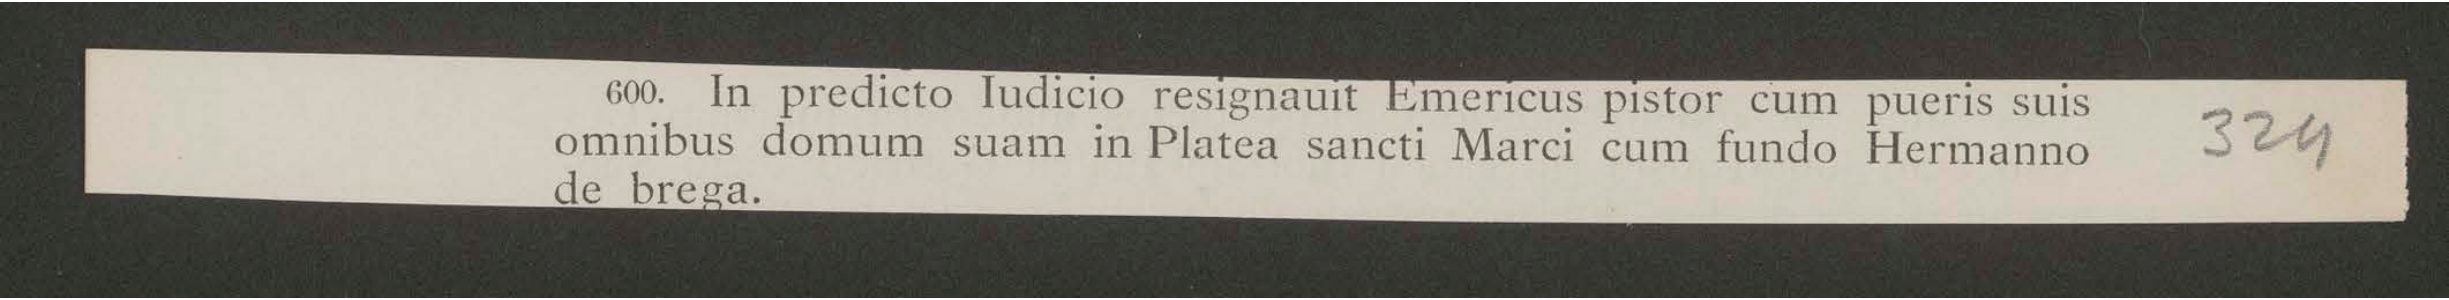 600. In predicto Iudicio resignauit Emericus pistor cum pueris suis
omnibus domum suam in Platea sancti Marci cum fundo Hermanno
de brega.
324